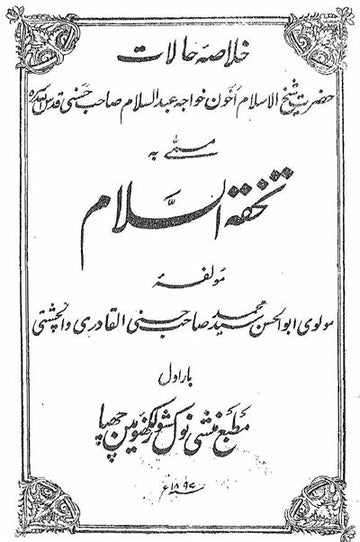 خلاصہ حالات
حضرت شیخ الاسلام آخون خواجہ عبد السلام صاحب حسنی قدس اللہ سرہ
مسمیٰ بہ
تحفۃ السلام
مولفۂ
مولوی ابوالحسن سید محمد صاحب حسنی القادری والچشتی
بار اول
مطبع منشی نولکشور لکھنؤ مین چھپا